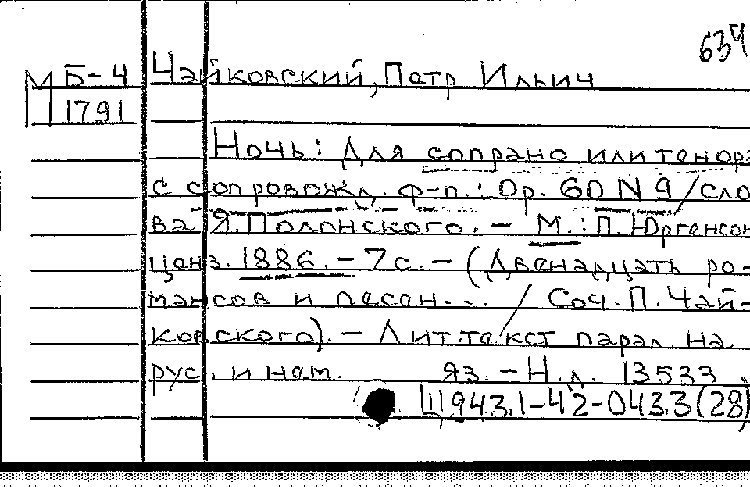 634
М Б-4 Чайковский, Петр Ильич
1791
Ночь: Для сопрано или тенора
с сопровожд. ф-п.: Op. 60 N 9/сло
ва Я. Полонского. - М.: П. Юргенсон
ценз. 1886. - 7 с. - (Двенадцать ро-
мансов и песен... / Соч. П. Чай-
ковского). - Лит. текст парал. на
рус. и нем. яз. - Н.д. 13533.
Щ943.1-42-043.3(28)